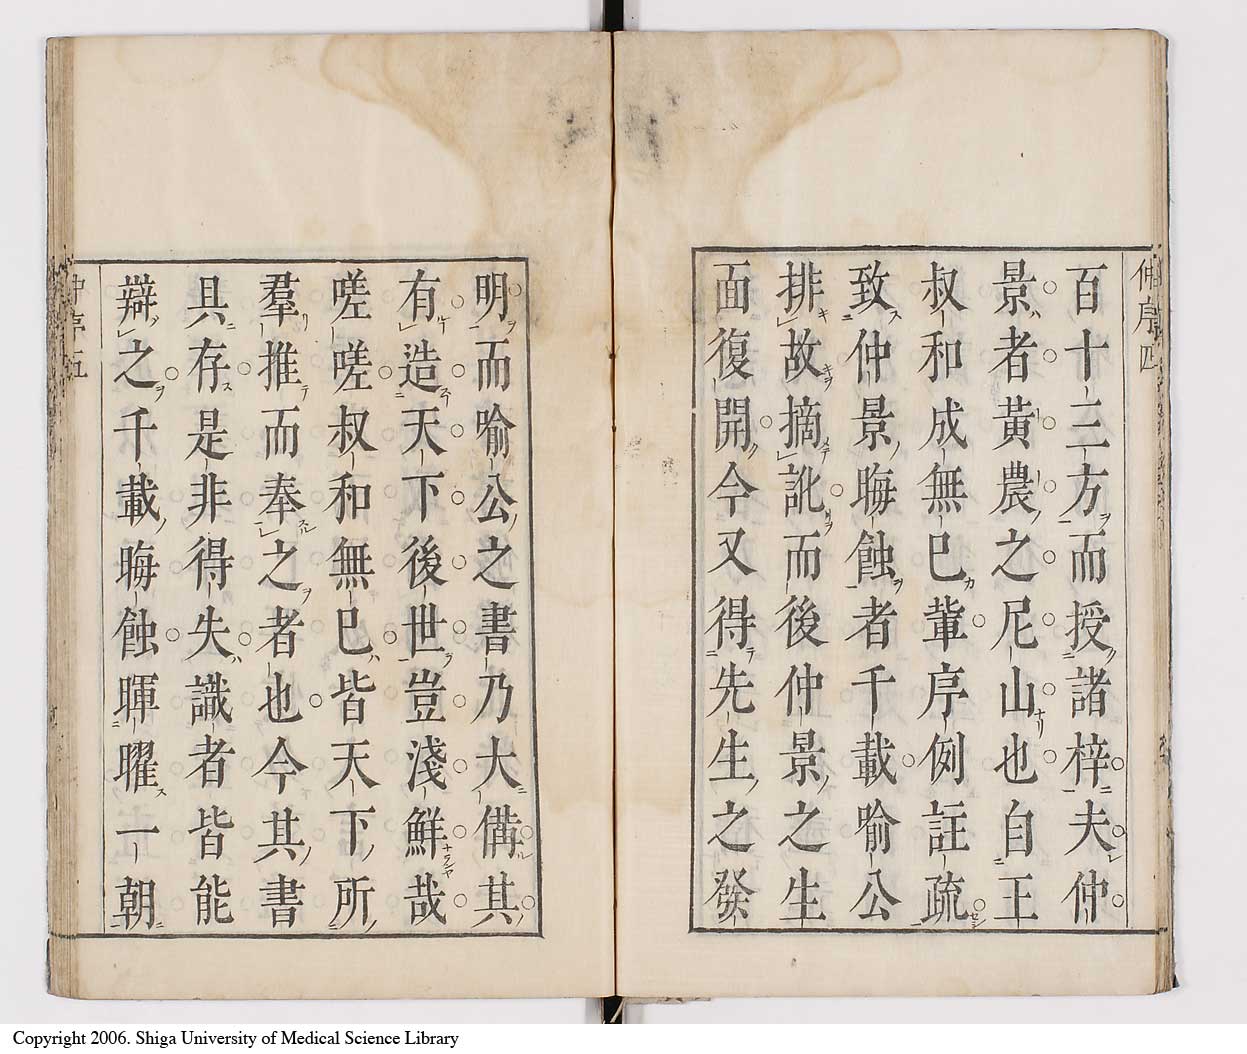 仲序四
百十三方而授諸梓夫仲
景者黃農之尼山也自王
叔和成無已軰序例註疏
致仲景晦蝕者千載喻公
排故摘訛而後仲景之生
面復開今又得先生之發
明而喻公之書乃大備其
有造天下後世豈淺鮮哉
嗟嗟叔和無已皆天下所
羣推而奉之者也今其書
具存是非得失識者皆能
辯之千載晦蝕暉曜一朝
仲序五
Copyright 2006. Shiga University of Medical Science Library